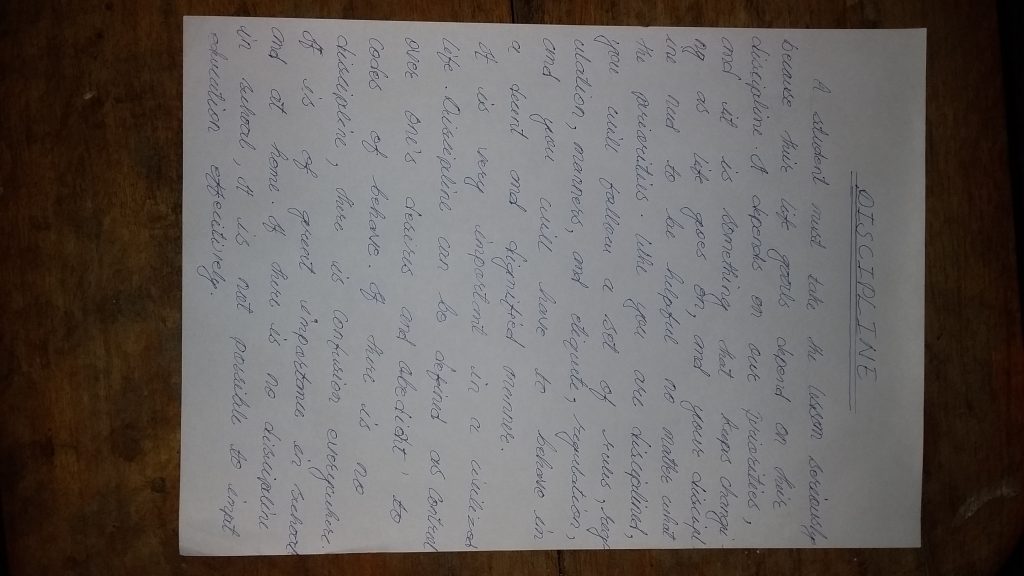 DISCIPLINE
A student must take the lesson seriously
because his life goals depend on his
discipline. It depends on our priorities,
and it is something that keeps changi-
ng as life goes on, and your discipl
ine need to be helpful no matter what
the priorities. like you are disciplined,
you will follow a set of rules, reg
ulation, manners, and etiquete, regulation,
and you will have to behave in
a decent and dignified mennure.
It is very important in a civilized
life. Discipline can be defind as control
over one's desires and obedient to
codes of behave. If there is no
discipline, there is confusion everywhere.
It is of great importance in school
and at home. If there is no discipline
in school, it is not possible to impt
education effectively.